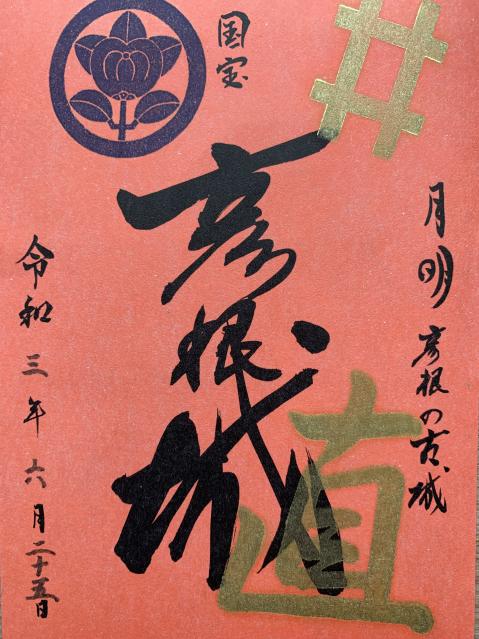 井
月明 彦根の古城
国宝
彦根城
直
令和三年六月二十五日